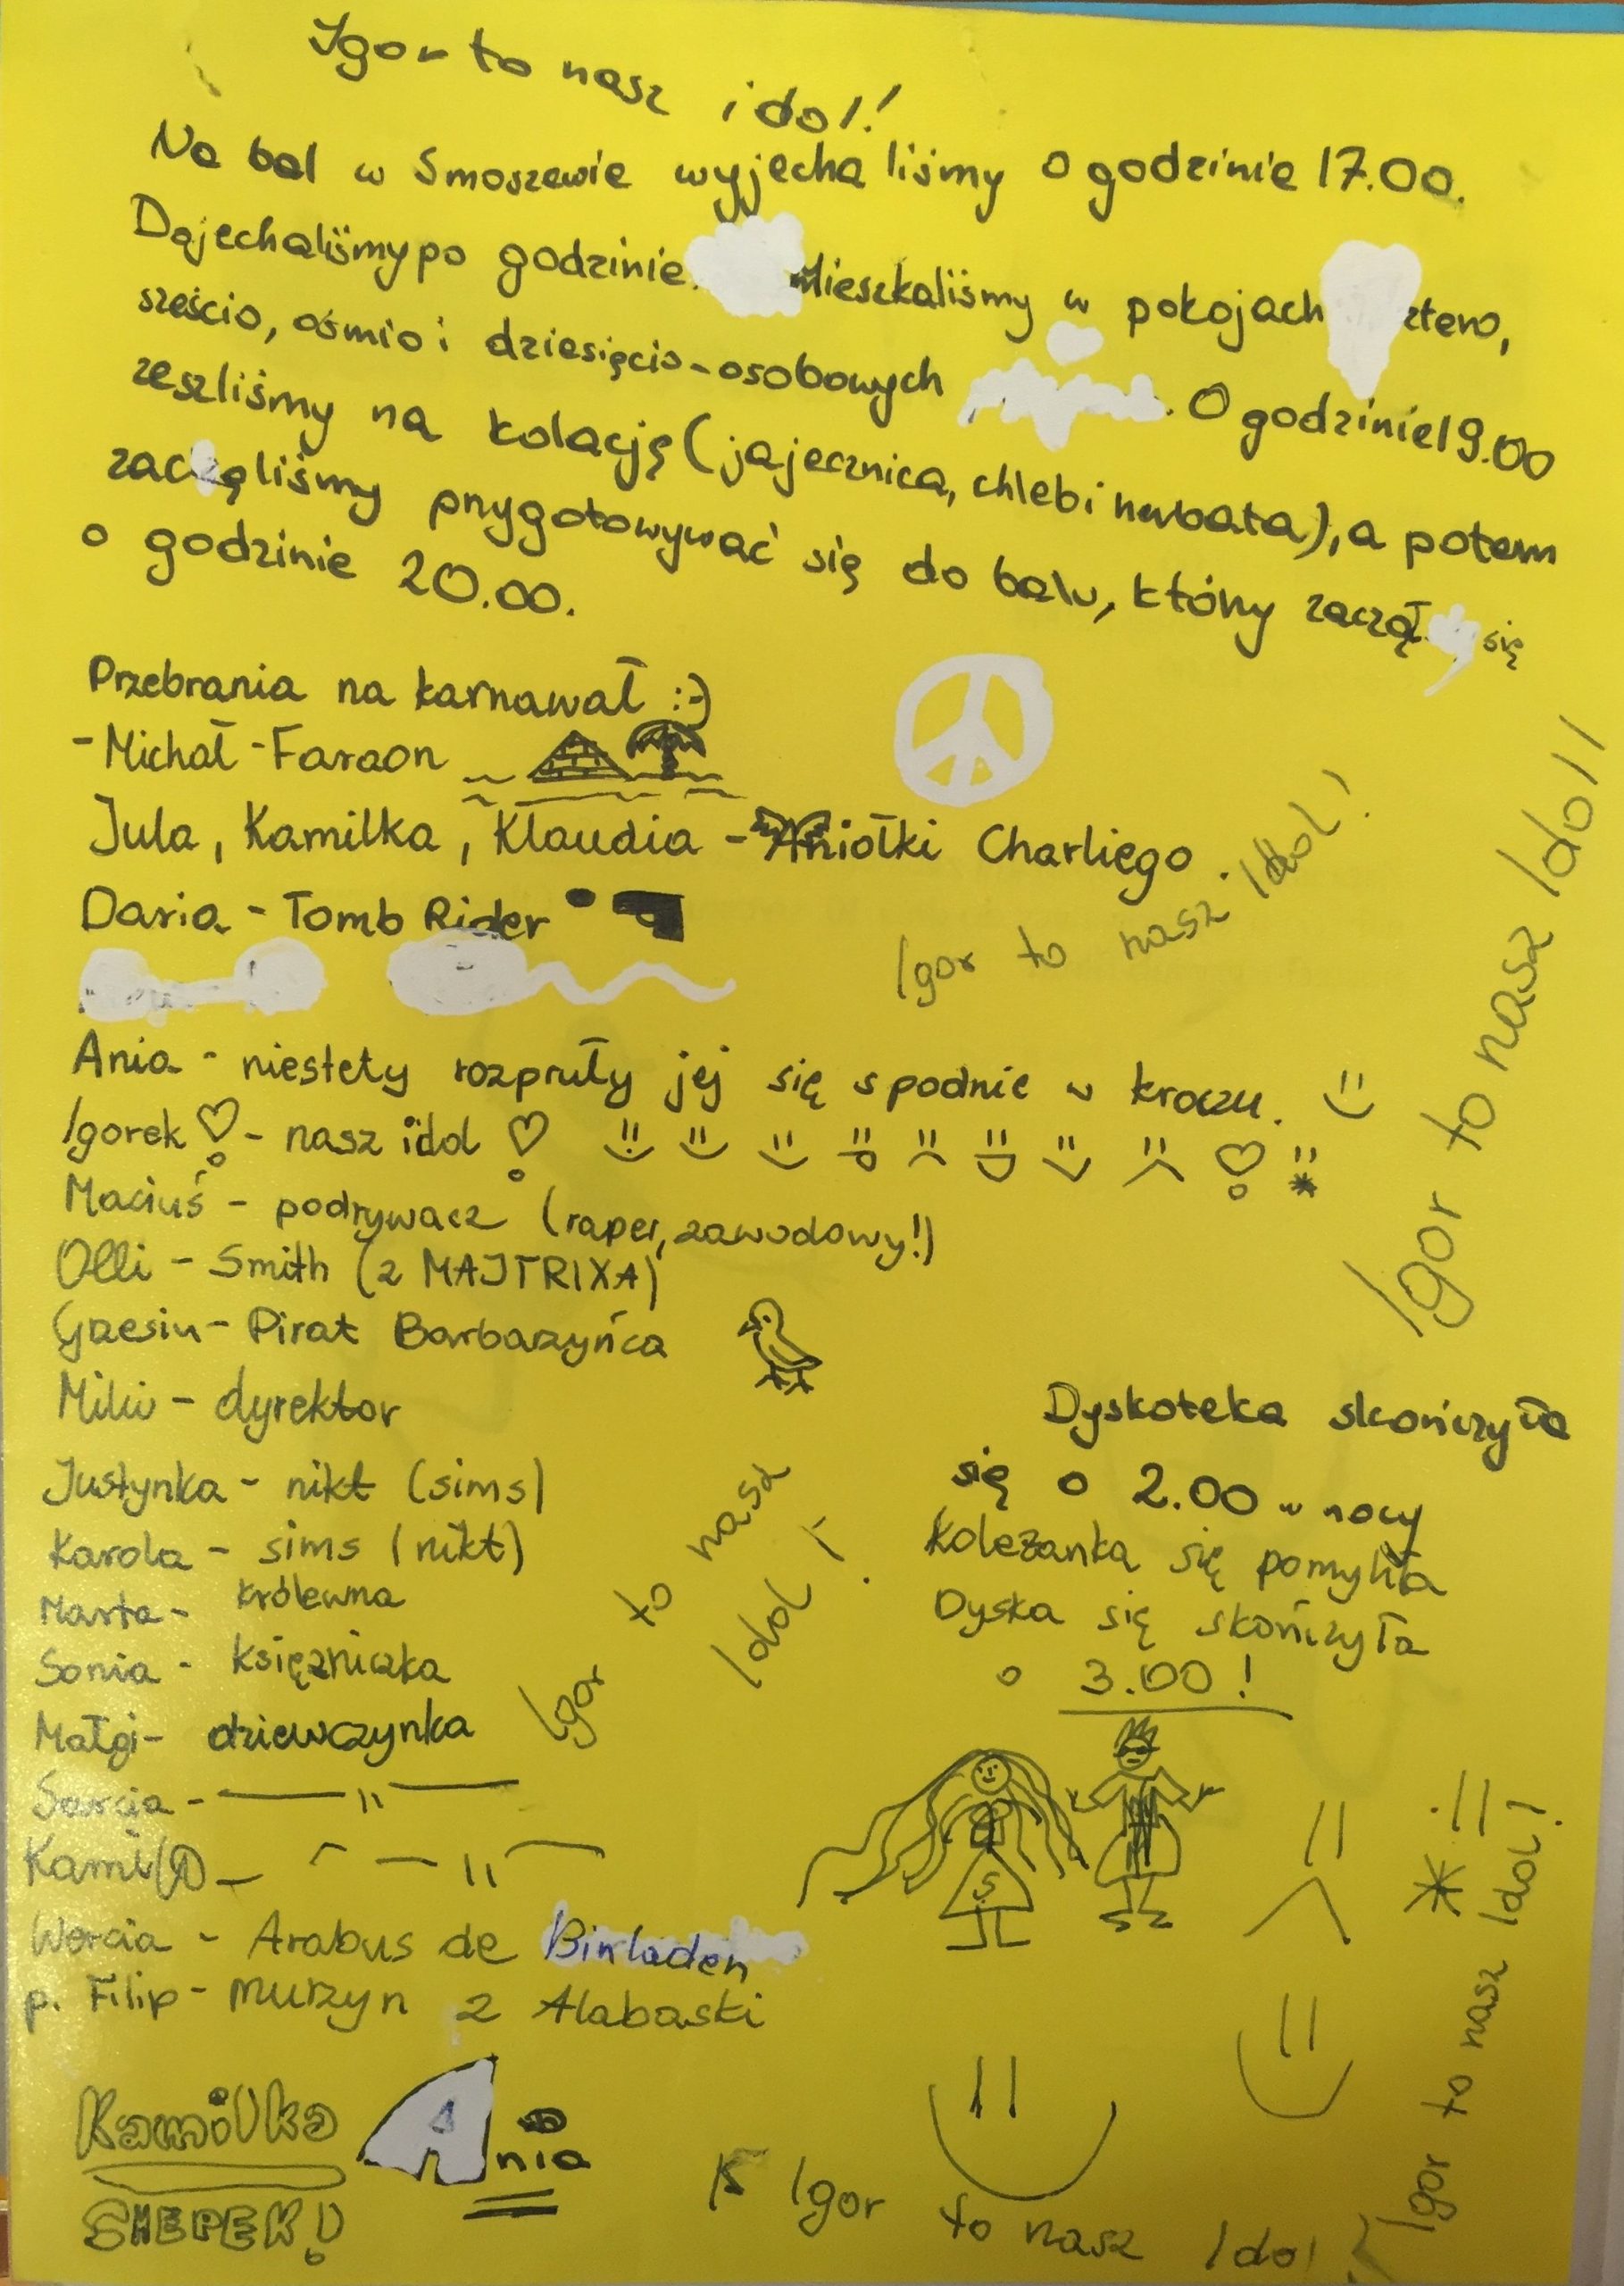 Igor to nasz idol!
Na bal w Smoszewie wyjechaliśmy o godzinie 17.00.
Dojechaliśmy po godzinie. Mieszkaliśmy w pokojach cztero,
sześcio, ośmio i dziesięcio-osobowych. O godzinie 19.00
zeszliśmy na kolację (jajecznica, chleb i herbata), a potem
zaczęliśmy przygotowywać się do balu, który zaczął się
o godzinie 20.00.
Przebrania na karnawał :-)
- Michał - Faraon
Jula, Kamilka, Klaudia - Aniołki Charliego.
Daria - Tomb Rider
Igor to nasz Idol!
Igor to nasz Idol!
Ania - niestety rozpruły jej się spodnie w kroczu.
Igorek - nasz idol
Maciuś - podrywacz (raper, zawodowy!)
Olli - Smith (z MAJTRIXA)
Grzesiu - Pirat Barbarzyńca
Miliu - dyrektor
Justynka - nikt (sims)
Karola - sims (nikt)
Marta - królewna
Sonia - księżniczka
Małgi - dziewczynka
Sarcia - — 11 —
Kamil — 11 —
Wercia - Arabus de Binladen
p. Filip - murzyn z Alabaski
Igor to nasz
Idol!
Dyskoteka skończyła
się o 2.00 w nocy
Koleżanka się pomyliła
Dyska się skończyła
o 3.00!
S
Igor to nasz Idol!
Kamilka
SHEPEK!
Ania
Igor to nasz Idol